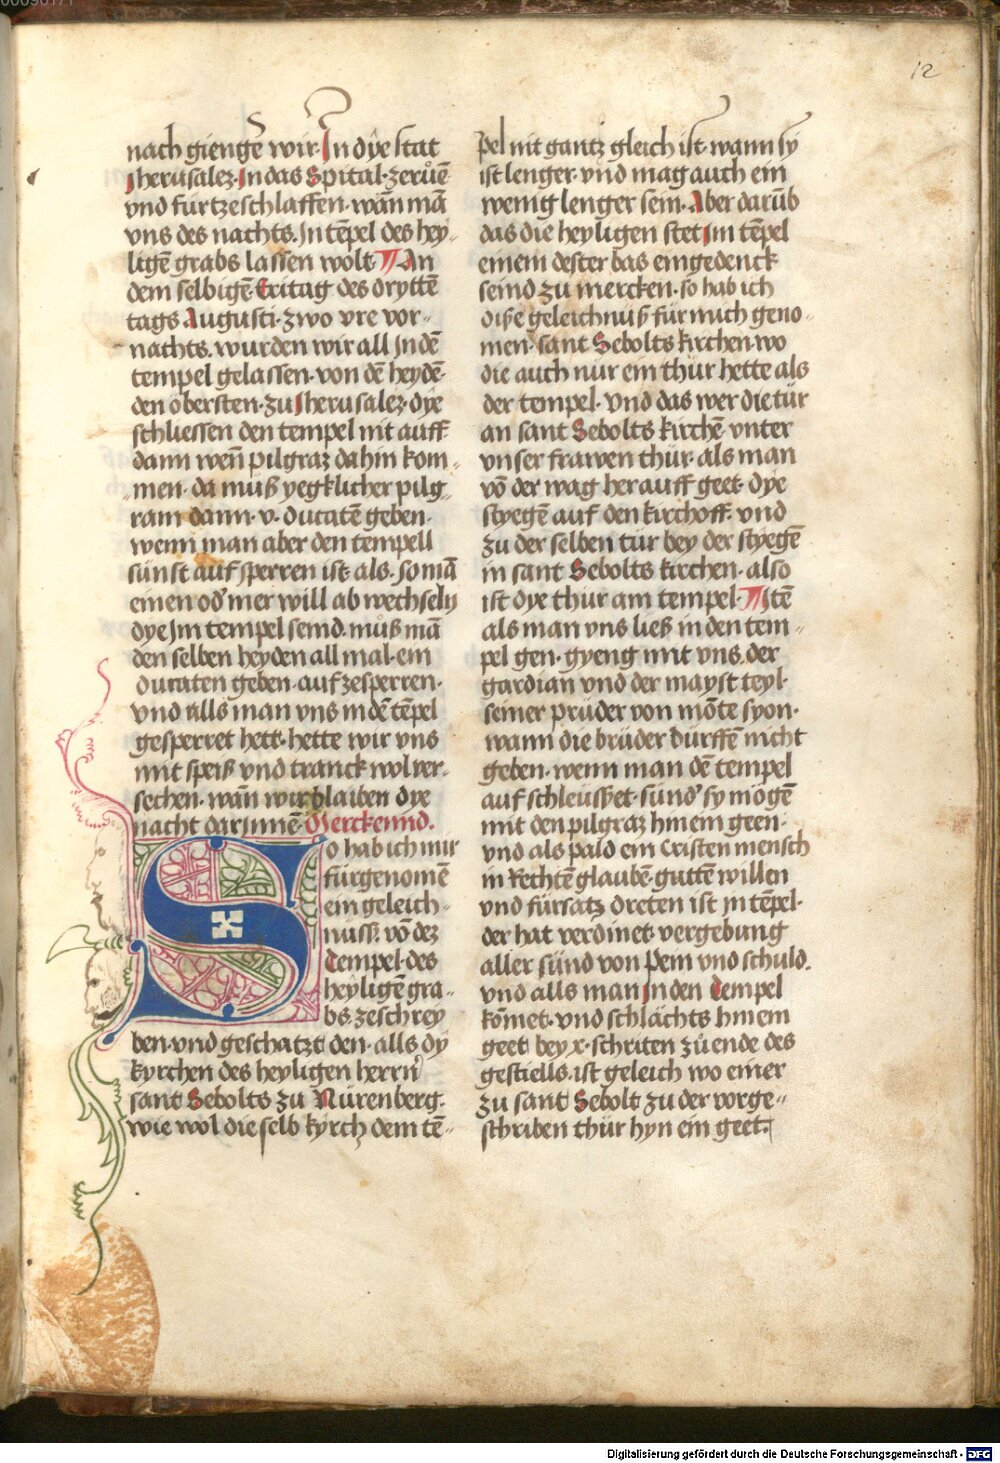 12
nach giengē wir. In dÿe stat
Jherusalez. In das Spital. zerůē
vnd fürtzeschlaffen. wān mā
vns des nachts. Jn tēpel des hey-
ligē grabs lassen wolt. ¶ An
dem selbigē Eritag des dryttē
tags Augusti. zwo vre vor-
nachts. wurden wir all Jn dē
tempel gelassen. von dē heydē-
den öbersten. zu Jherusalez. dye
schliessen den tempel nit auff.
dann weñ pilgraz dahin kom-
men. da muß yegklicher pilg-
ram dann. v. ducatē geben.
wenn man aber den tempell
sünst auf sperren ist. als. so mā
einen od' mer will ab wechseln
dye Jm tempel seind. můß mā
den selben heyden all mal. ein
ducaten geben. auf zesperren.
vnd alls man vns in dē tēpel
gesperret hett. hette wir vns
mit speiß vnd tranck wol ver-
sechen. wān wir blaiben dye
nacht darjnnē. Merck eind.
So hab ich mir
fürgenomē
ein geleich-
nuss. vō dez
tempel. des
heyligē gra-
bs. zeschrey
ben. vnd geschatzt den. alls dy
kyrchen des heyligen herrn
sant Sebolts zu Nürenberg.
wie wol die selb kyrch dem tē-
pel nit gantz gleich ist. wann sy
ist lenger. vnd mag auch ein
wenig lenger sein. Aber darūb
das die heyligen stet Jm tēpel
einem dester bas eingedenck
seind zu mercken. so hab ich
dise geleichnuß für mich geno-
men. sant Sebolts kirchen. wo
die auch nur ein thür hette als
der tempel. vnd das wer die tür
an sant Sebolts kirchē. vnter
vnser frawen thür. als man
vō der wag herauff geet. dye
styegē auf den kirchoff. vnd
zu der selben tür bey der styegē
in sant Sebolts kirchen. also
ist dye thür am tempel. ¶ Itē
als man vns ließ in den tem-
pel gen. gyeng mit vns der
gardian vnd der mayst teyl.
seiner prüder von mōte syon.
wann die brüder dürffē nicht
geben. wenn man dē tempel
auf schleusset. sund' sy mögē
mit den pilgraz hinein geen.
vnd als pald ein Cristen mensch
in Rechtē glaubē. guttē willen
vnd fürsatz dreten ist jn tēpel.
der hat verdinet vergebung
aller sünd von Pein vnd schuld.
vnd alls man Jn den tempel
kōmet. vnd schlächts hinein
geet bey x. schriten zů ende des
gestiells. ist geleich wo einer
zu sant Sebolt zu der vorge-
schriben thür hyn ein geet.
Digitalisierung gefördert durch die Deutsche Forschungsgemeinschaft - DFG